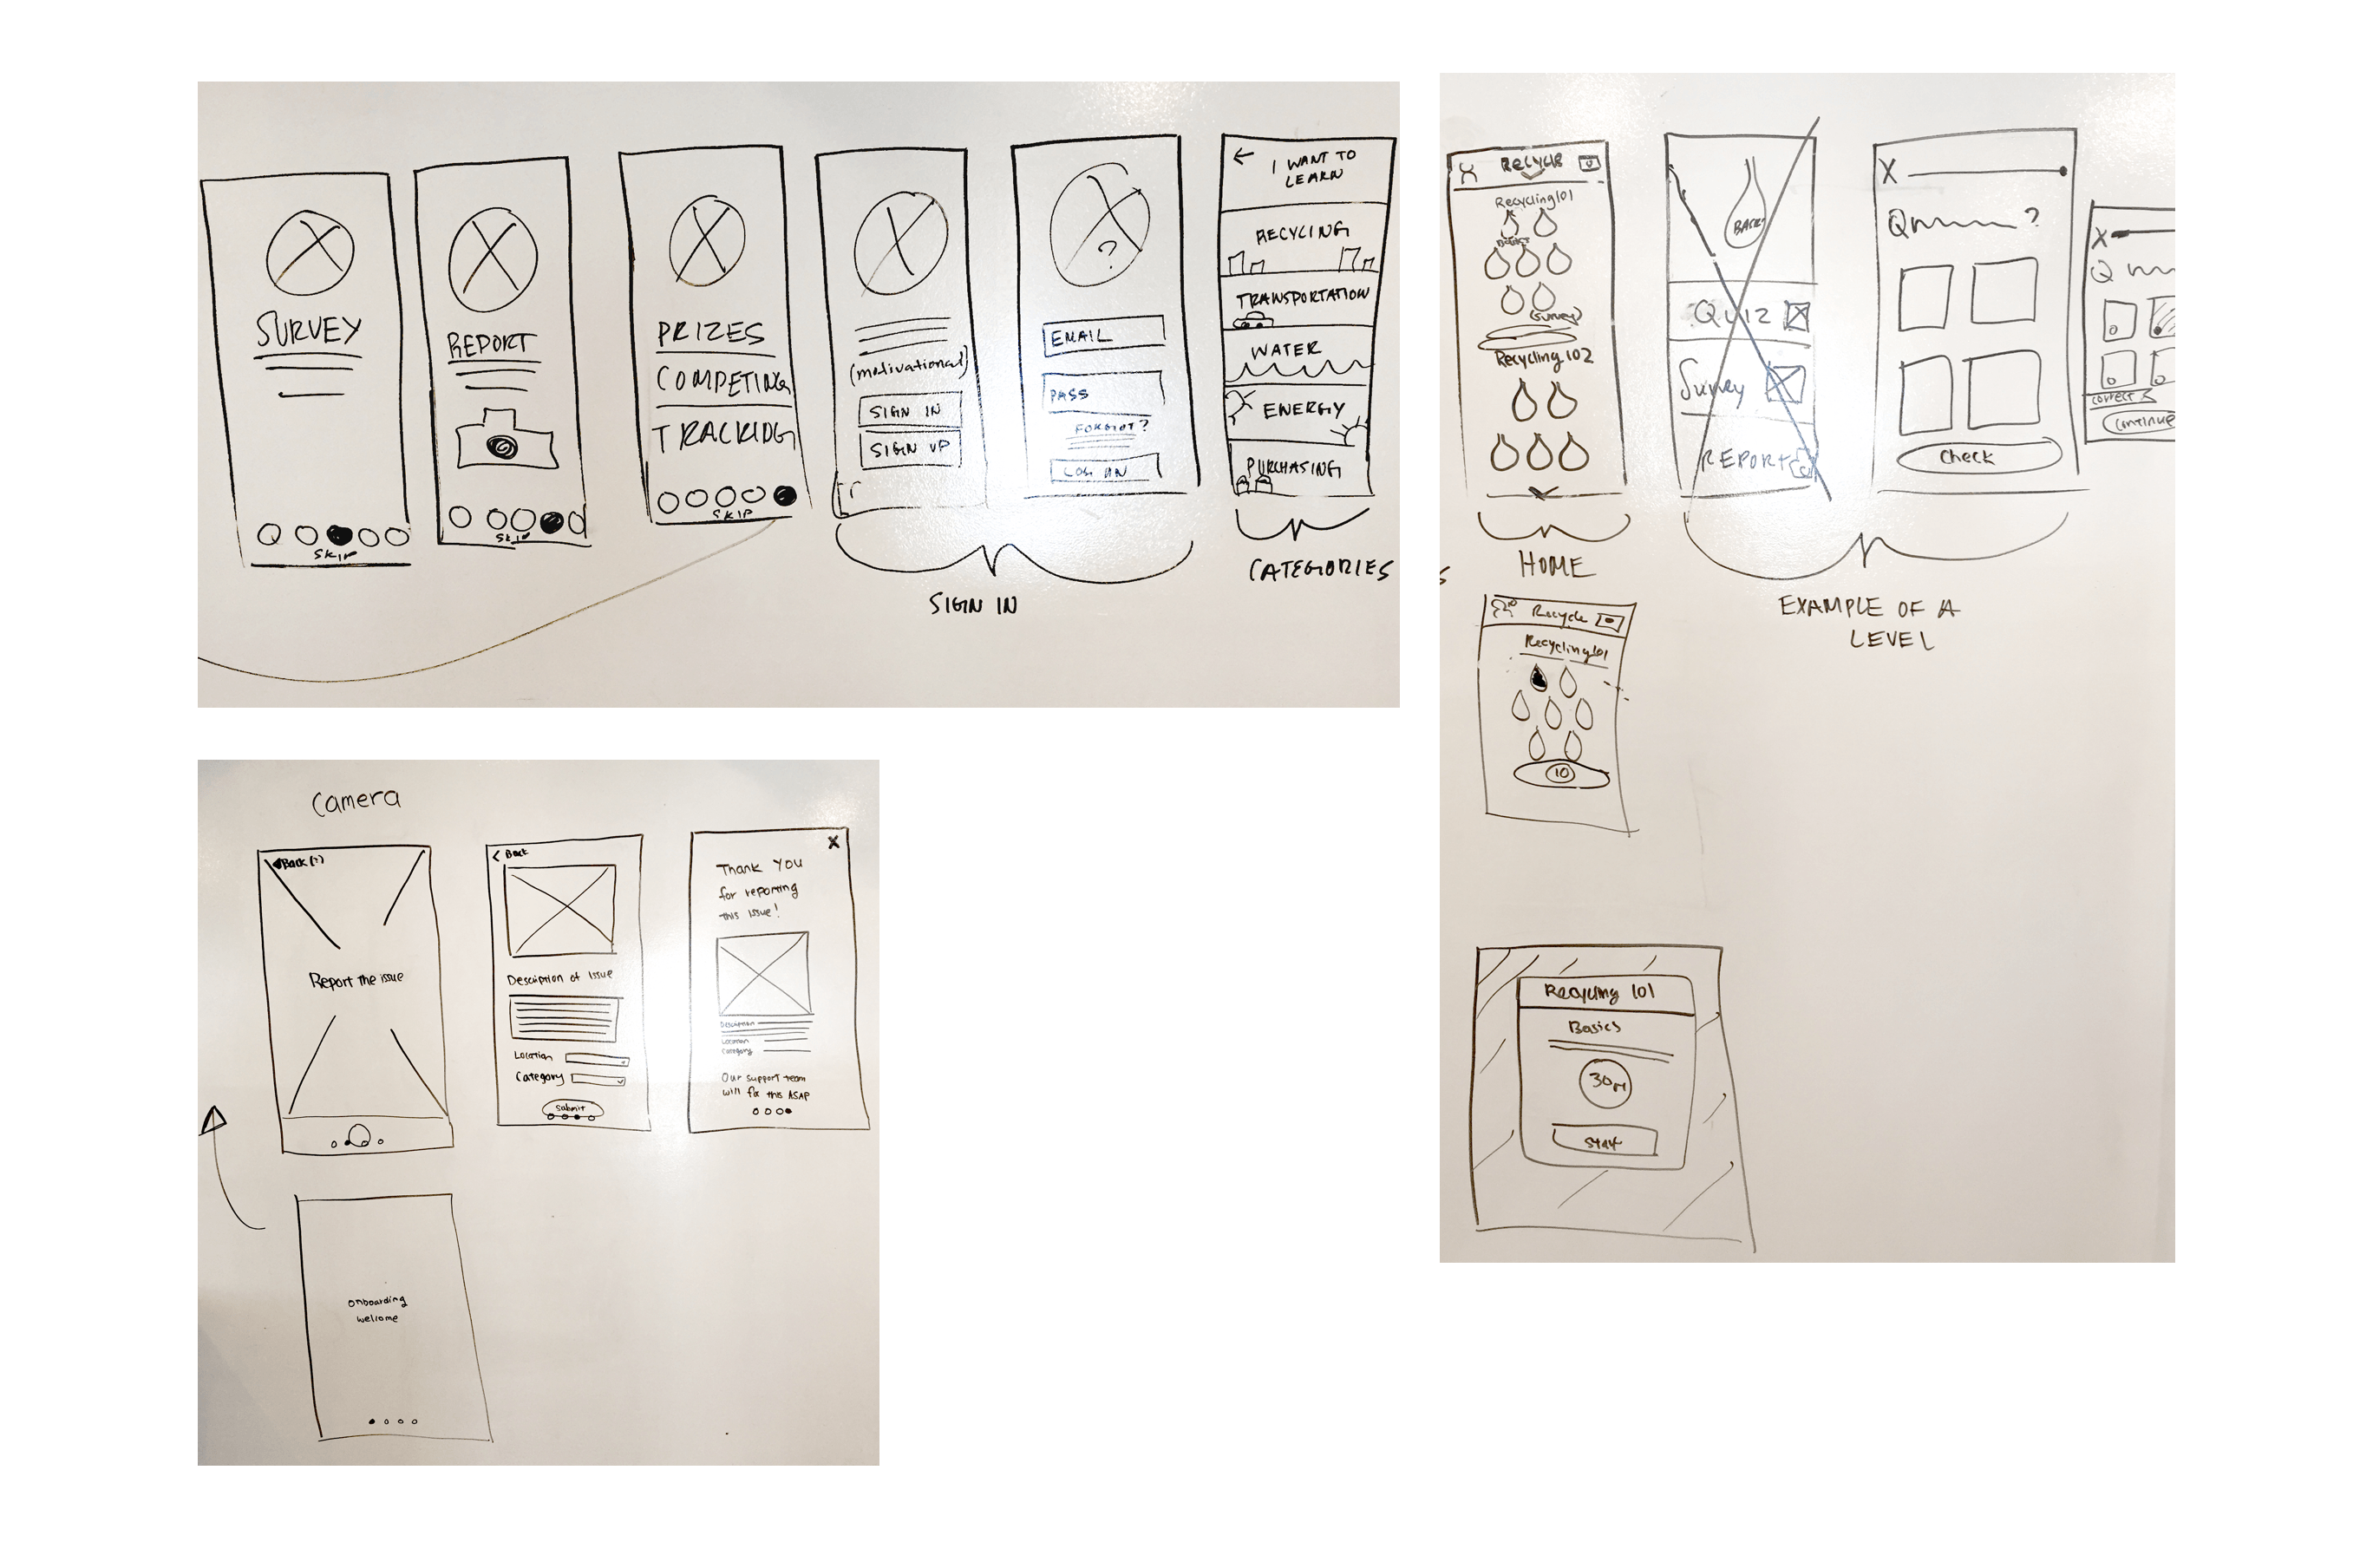 SURVEY
SKIP
REPORT
SKIP
PRIZES
COMPETING
TRACKING
SKIP
(motivational)
SIGN IN
SIGN UP
?
EMAIL
PASS
FORGOT?
LOG IN
SIGN IN
← I WANT TO
LEARN
RECYCLING
TRANSPORTATION
WATER
ENERGY
PURCHASING
CATEGORIES
RECYCLE
Recycling 101
(survey)
Recycling 102
HOME
BASICS
QUIZ
Survey
REPORT
X
Q ?
Check
X
Q
correct
Continue
EXAMPLE OF A
LEVEL
Recycle
Recycling 101
10
Recycling 101
Basics
START
Camera
Back (?)
Report the issue
< Back
Description of Issue
Location
Category
Submit
X
Thank You
for reporting
this issue!
Description
Location
Category
Our support team
will fix this ASAP
onboarding
welcome